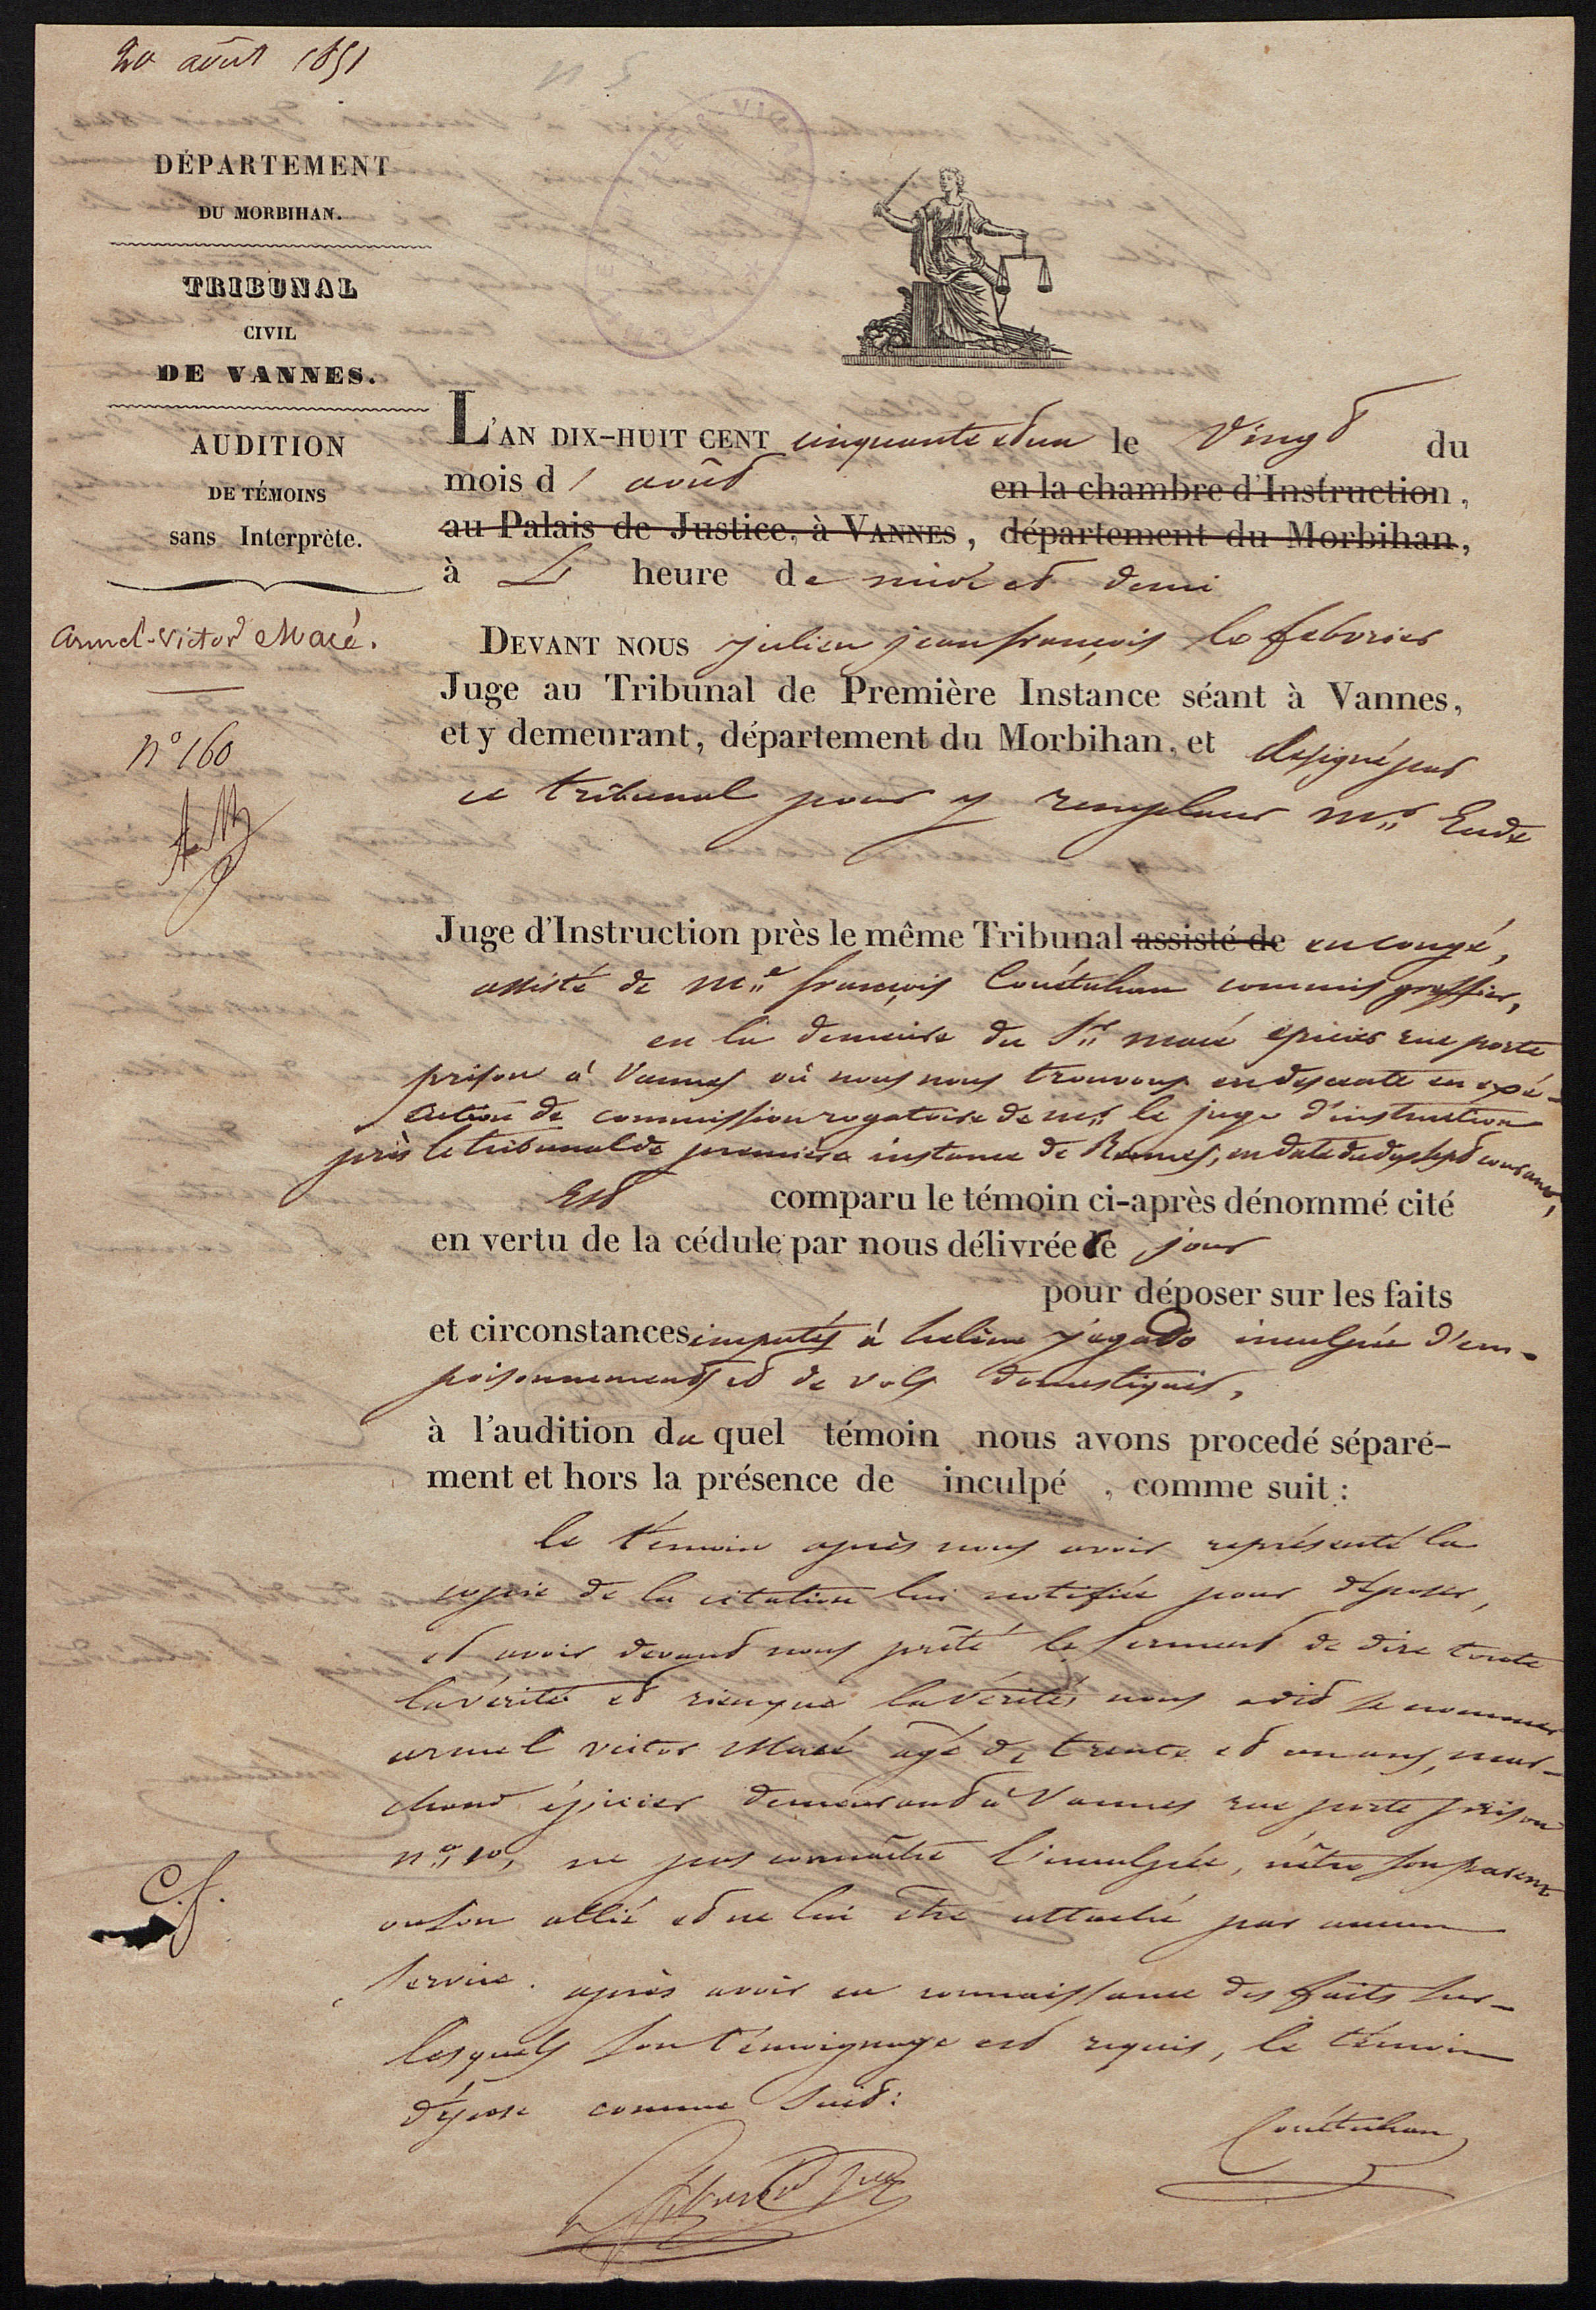 20 août 1851
DÉPARTEMENT
DU MORBIHAN.
TRIBUNAL
CIVIL
DE VANNES.
AUDITION
DE TÉMOINS
sans Interprète.
Armel-Victor Macé.
n° 160
L'AN DIX-HUIT CENT cinquante et un le vingt du
mois d' août en la chambre d'Instruction,
au Palais de Justice, à VANNES, département du Morbihan,
à L' heure de midi et demi
DEVANT NOUS julien jean françois le febvrier
Juge au Tribunal de Première Instance séant à Vannes,
et y demeurant, département du Morbihan, et designé par
ce tribunal pour y remplacer Mr Eude
Juge d'Instruction près le même Tribunal assisté de en congé,
assisté de Me françois Couëtuhan commis greffier,
en la demeure du Sr macé épicier rue porte
prison à Vannes où nous nous trouvons en descente en exé-
cution de commission rogatoire de mr le juge d'instruction
près le tribunal de première instance de Rennes, en date du dix sept courant,
Est comparu le témoin ci-après dénommé cité
en vertu de la cédule par nous délivrée ce jour
pour déposer sur les faits
et circonstances imputés à helène jégado inculpée d'em-
poisonnements et de vols domestiques,
à l'audition du quel témoin nous avons procedé séparé-
ment et hors la présence de inculpé, comme suit :
le témoin après nous avoir représenté la
copie de la citation lui notifiée pour déposer,
et avoir devant nous prêté le serment de dire toute
la vérité et rien que la vérité, nous a dit se nommer
armel victor Macé âgé de trente et un ans, mar-
chand épicier demeurant à Vannes rue porte prison
n° 10, ne pas connaître l'inculpée, n'être son parent
ou son allié et ne lui être attaché par aucun
service. après avoir eu connaissance des faits sur-
lesquels son témoignage est requis, le témoin
dépose comme suit:
C.f.
Couëtuhan